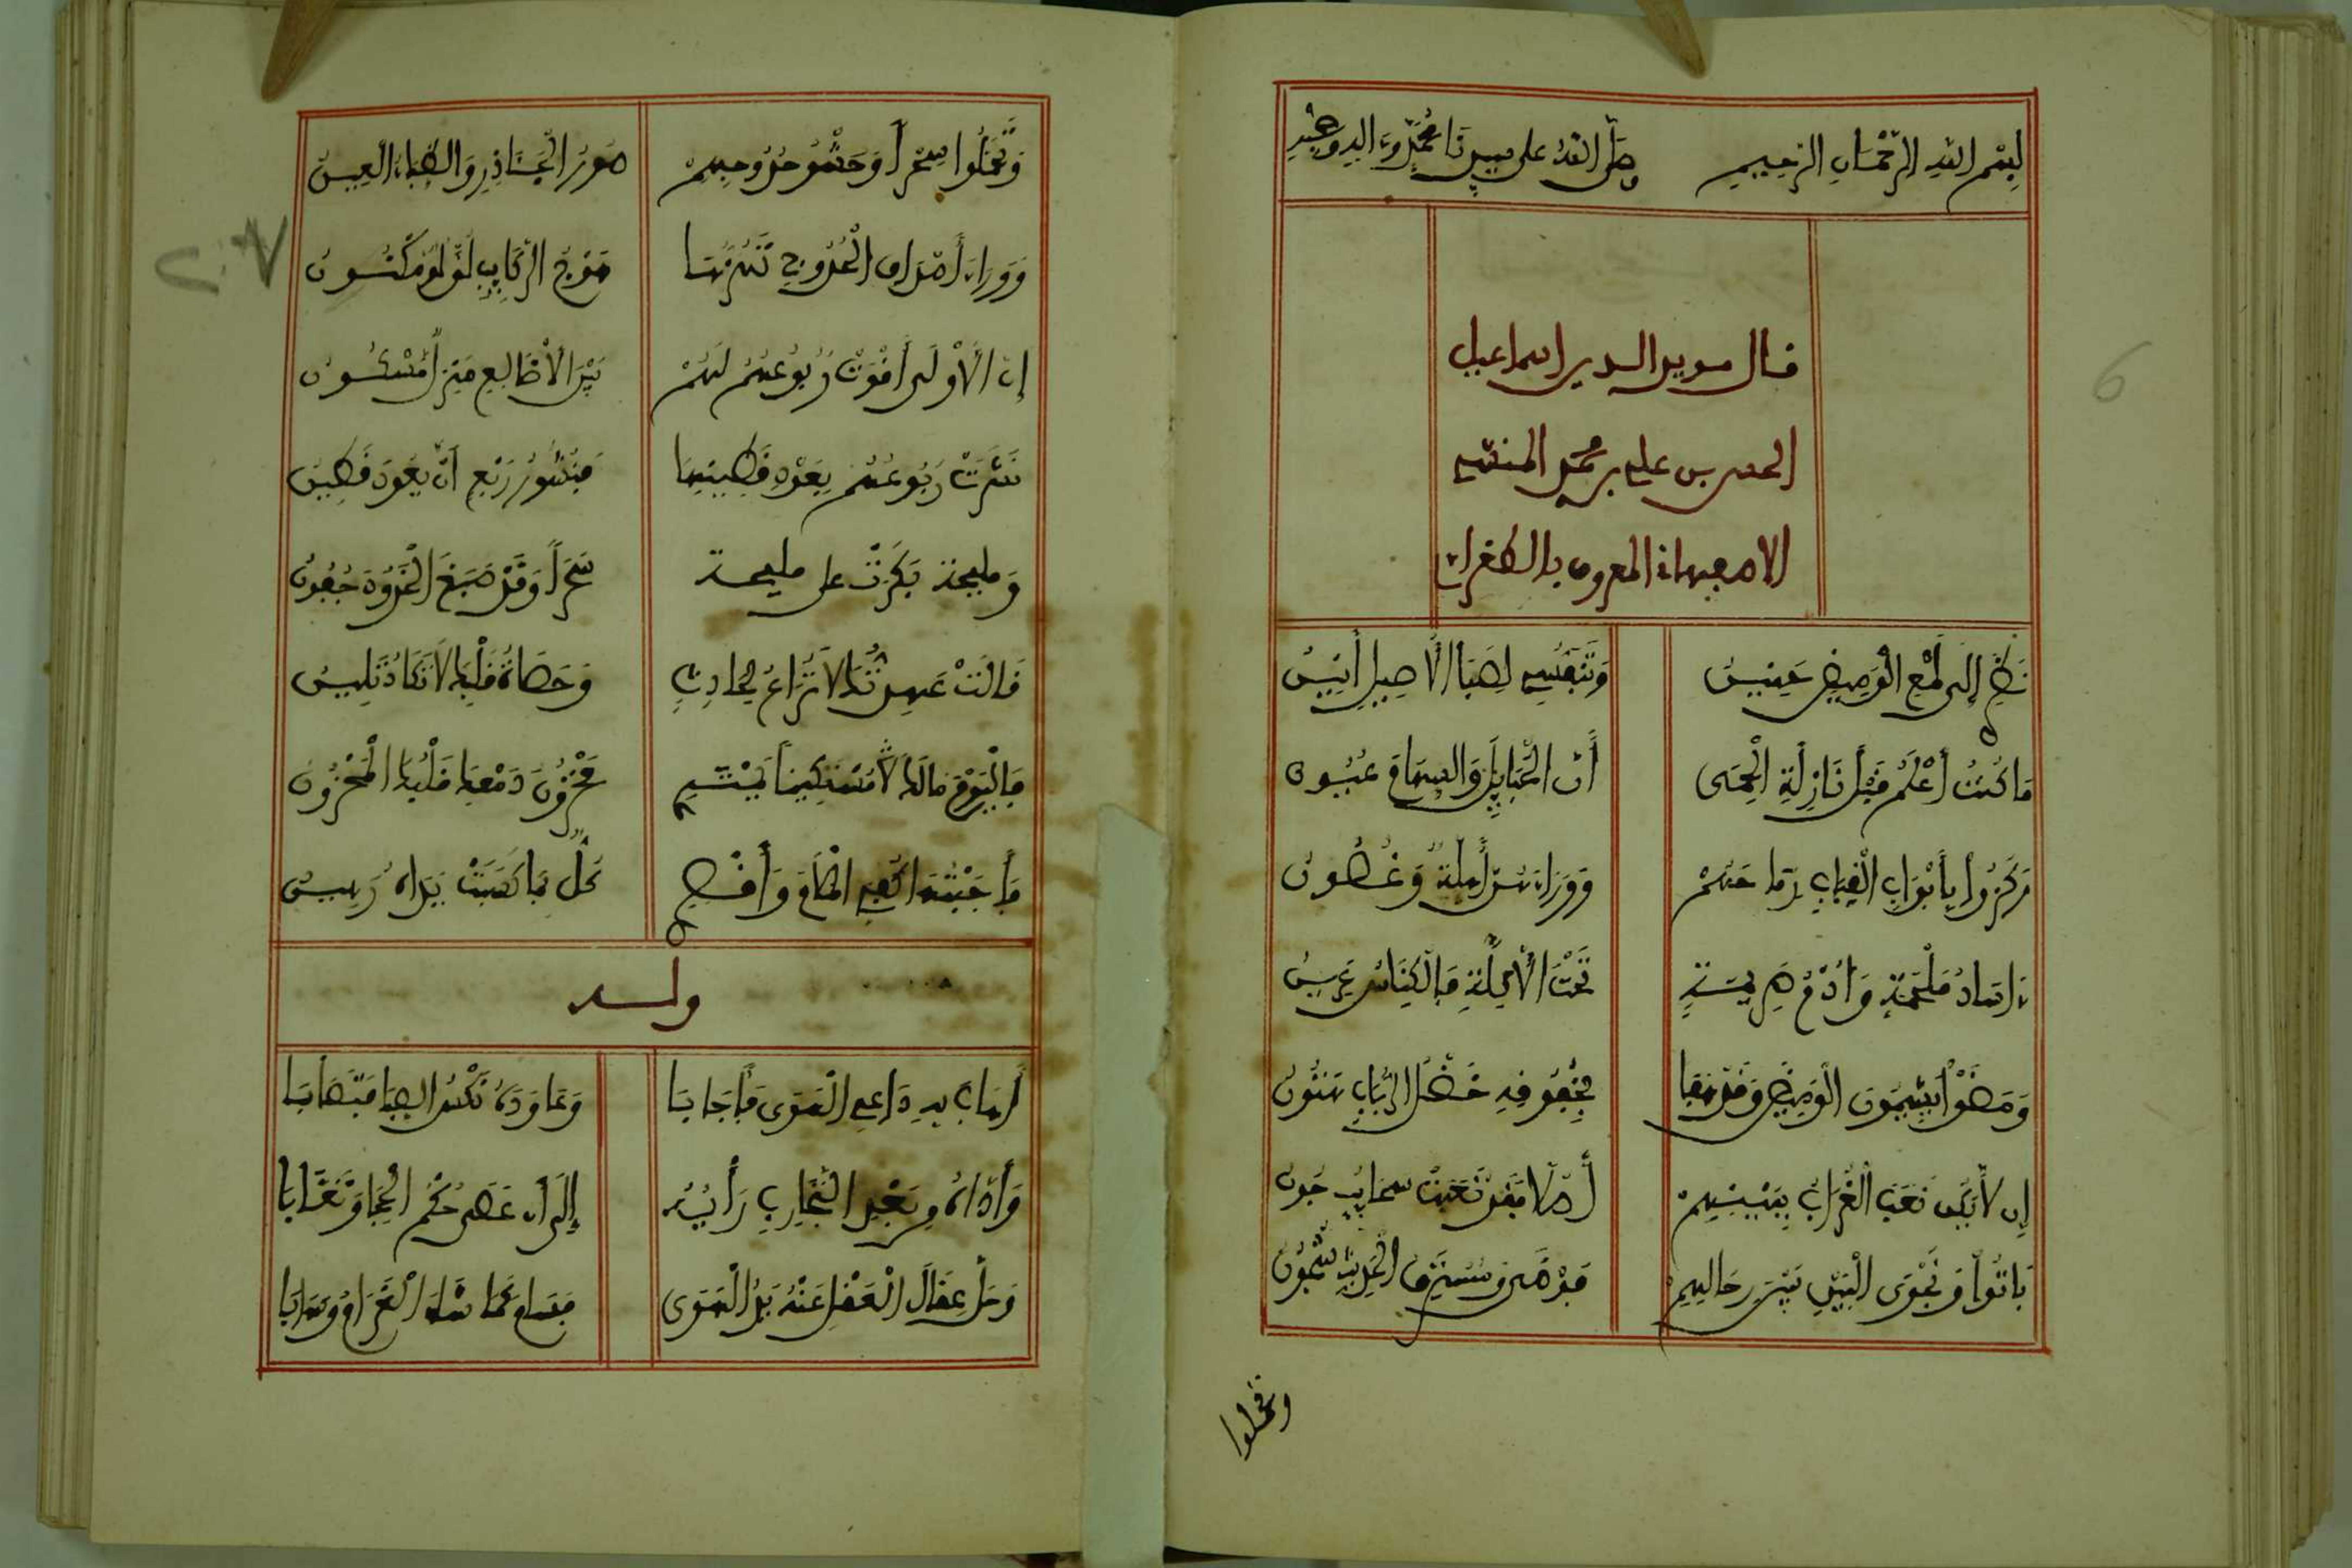 بِسْمِ اللهِ الرَّحْمَٰنِ الرَّحِيمِ وصَلَّى اللهُ على سيدِنَا مُحَمَّدٍ وءَالِهِ وصَحْبِهِ
6
قال مويد الدين اسماعيل
الحسن بن علي بن محمد المنشي
الاصبهاني المعروف بالطغراي
إِلَى لَمْعِ الْوَمِيضِ حَنِينُ وَتَنَفُّسِي لِصَبَا الأَصِيلِ أَنِينُ
مَا كُنْتُ أَعْلَمُ قَبْلَ نَازِلَةِ الْحِمَى أَنَّ الْحَبَايِلَ وَالسِّهَامَ عُيُونُ
رَكَزُوا بِأَبْوَابِ الْقِبَابِ رِمَاحَهُمْ وَوَرَاءَهُنَّ أَهِلَّةٌ وَغُصُونُ
ءَاسَادُ مَلْحَمَةٍ وَأُدْمُ صَرِيمَةٍ تَحْتَ الأَكِلَّةِ وَالْكِنَاسُ عَرِينُ
وَمَضَوْا يَشِيمُونَ الْوَمِيضَ وَقَدْ هَفَا خَضْلُ الرَّبَابِ هَتُونُ
إِن لاَّ يَكُن نَعَبَ الْغُرَابُ بِبَيْنِهِمْ أُصُلًا فَقَدْ نَعَبَتْ سَحَايِبُ جُونُ
بَاتُوا وَنَجْوَى الْبَيْنِ بَيْنَ رِحَالِهِمْ الْحَدِيثَ شُجُونُ
وتحملوا
وَتَحَمَّلُوا سَحَرًا وَحَشْوُ حُدُوجِهِمْ صُوَرُ الْجَآذِرِ وَالظِّبَاءِ الْعِينِ
وَوَرَاءَ أَصْدَافِ الْحُدُوجِ تَهُزُّهَا هَوْجُ الرَّكَايِبِ لُؤْلُؤٌ مَكْنُونُ
إِنَّ الأُولَى أَقْوَتْ رُبُوعُهُمُ لَهُمْ بَيْنَ الأَضَالِعِ مَنْزِلٌ مَسْكُونُ
نَشَرَتْ رُبُوعُهُمُ بِعَوْدِ قَطِينِهَا مَنْشُورُ رَبْعٍ أَنْ يَعُودَ قَطِينُ
وَمليحةٍ بَكَرَتْ على مليحةً سَحَرًا وَقَدْ صَبَغَ جُفُونُ
قَالَتْ عَهِدْتُكَ لاَ تُرَاعُ لِحَادِثٍ وَحَصَاةُ قَلْبِكَ لاَ تَكَادُ تَلِينُ
فَالْيَوْمَ مالكَ مُسْتَكِينًا تَشْتَكِي مَخْزُونَ دَمْعِكَ قَلْبُكَ الْمَحْزُونُ
فَأَجَبْتُهَا الْمَلاَمَ وَأَقْصِرِي كُلٌّ بِمَا كَسَبَتْ يَدَاهُ رَهِينُ
وله
أَهَابَ بِهِ دَاعِي الْهَوَى فَأَجَابَا وَعَاوَدَهُ نُكْسُ الصِّبَا فَتَصَابَا
وَأَدَّاهُ مِنْ بَعْدِ التَّجَارِبِ رَأْيُهُ إِلَى أَن عَصَى حُكْمَ الْحِجَا وَتَغَابَا
وَحَلَّ عِقَالَ الْعَقْلِ عَنْهُ يَدُ الْهَوَى فَسَاءَ كَمَا شَاءَ الْغَرَامُ وَسَابَا